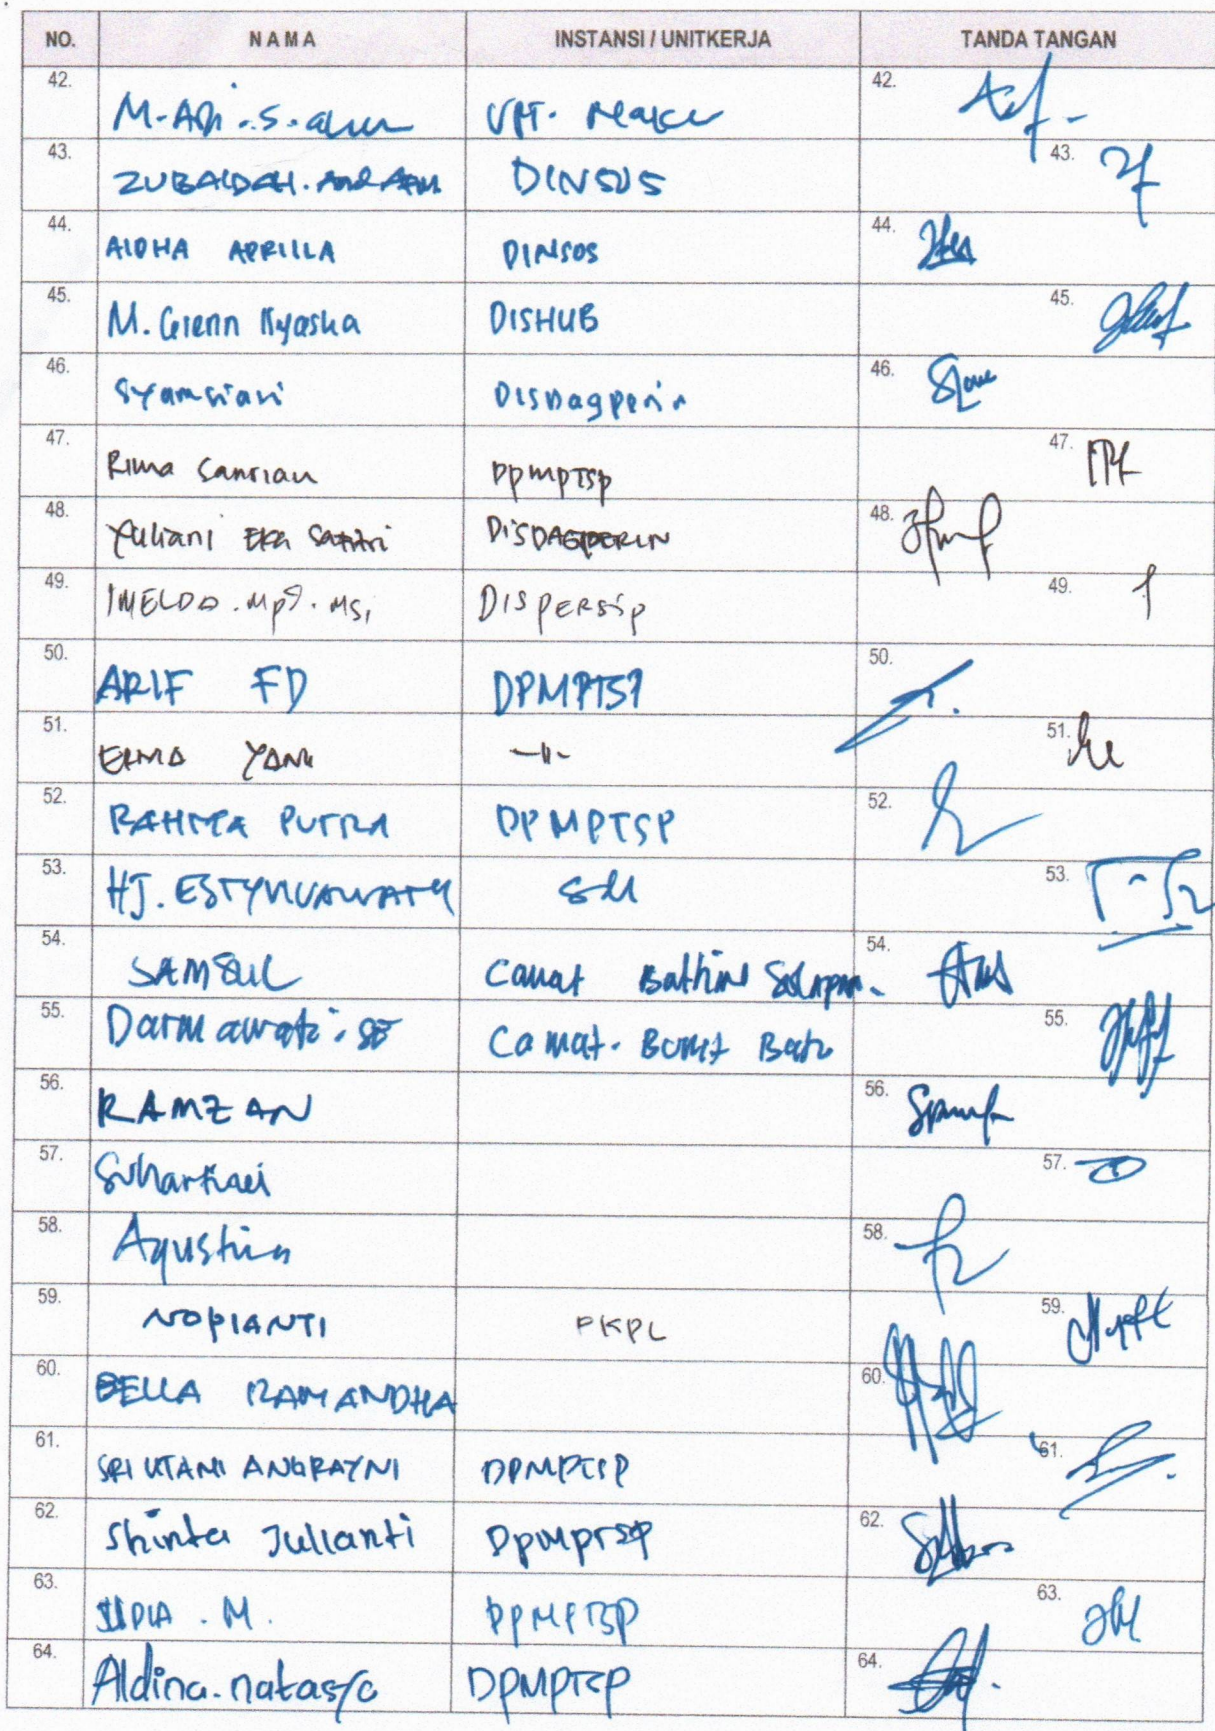 NO. NAMA INSTANSI / UNITKERJA TANDA TANGAN
42. 42.
43. ZUBAIDAH. DINSOS 43.
44. AIDHA APRILLA DINSOS 44.
45. M. Glenn DISHUB 45.
46. Syamsiari Disdagperin 46.
47. Rima DpmpTsp 47.
48. Yuliani Eka Safitri DISDAGPERIN 48.
49. IMELDA DISPERSip 49.
50. ARIF FD DPMPTSP 50.
51. ERMA YANI —11- 51.
52. PUTRA DPMPTSP 52.
53. HJ. 53.
54. SAMSUL Camat Bathin 54.
55. Darmawati. SE Camat. Bukit Batu 55.
56. RAMZAN 56.
57. 57.
58. Agustina 58.
59. NOPIANTI PKPL 59.
60. BELLA RAMANDHA 60.
61. SRI UTAMI ANGRAYNI DPMPTSP 61.
62. Shinta Julianti DpmpTsp 62.
63. M. DPMPTSP 63.
64. Aldina. natasya DPMPTSP 64.